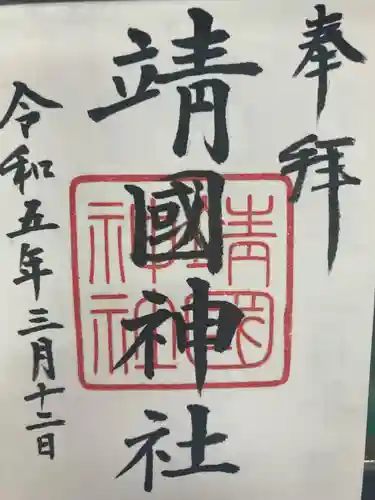 奉拝
靖國神社
靖國神社
令和五年三月十二日